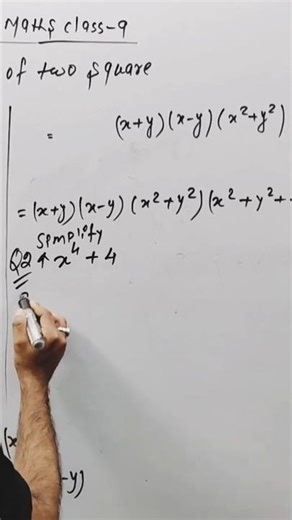 Maths class-9
of two square
= (x+y)(x-y)(x²+y²)
= (x+y)(x-y)(x²+y²)(x²+y²+
Simplify
Q2 x⁴+4
(x
-y)